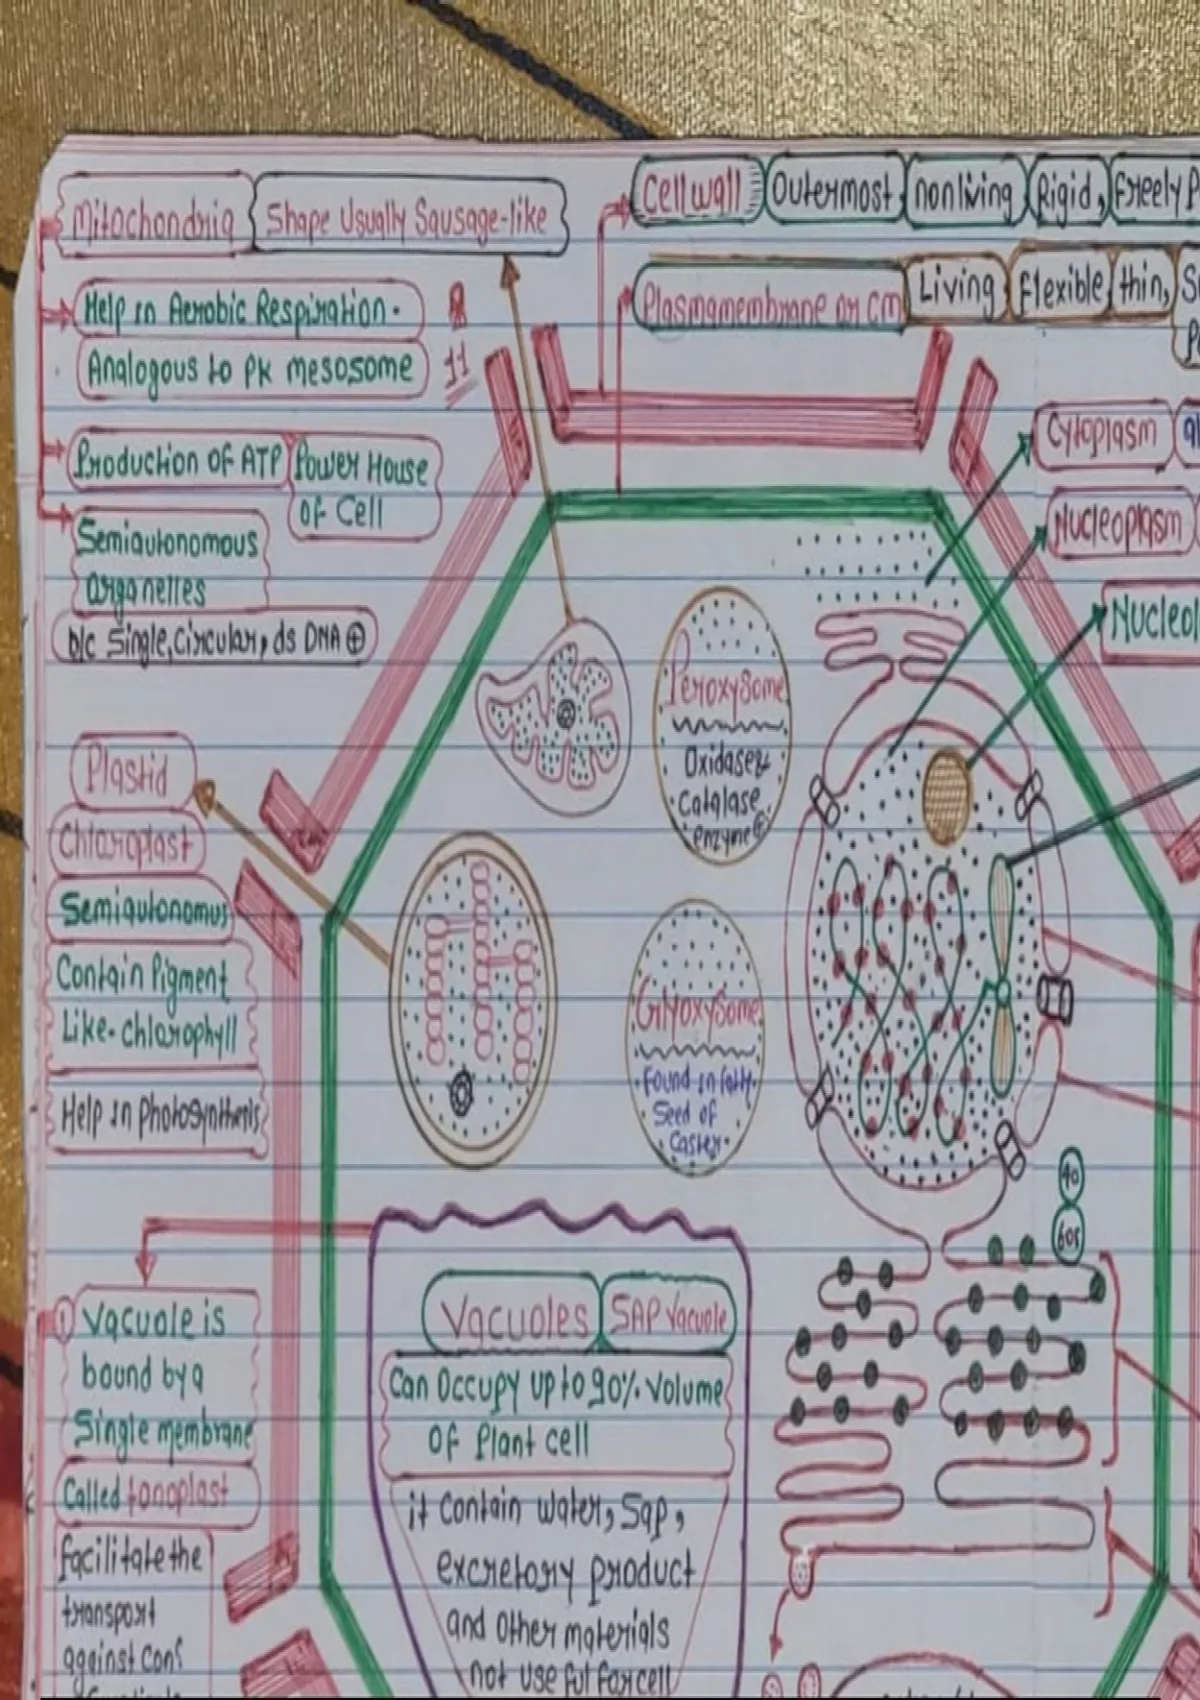 Mitochondria Shape Usually Sausage-like
Help in Aerobic Respiration.
Analogous to PK mesosome
Production of ATP Power House
of Cell
Semiautonomous
Organelles
b/c Single, Circular, ds DNA ⊕
Cell wall Outermost, nonliving, Rigid, freely
Plasmamembrane or CM Living, flexible, thin,
Cytoplasm
Nucleoplasm
Nucleol
Plastid
Chloroplast
Semiautonomus
Contain Pigment
Like-chlorophyll
Help in photosynthesis
Peroxysome
Oxidase &
Catalase
enzyme ⊕
Glyoxysome
Found in fatty
Seed of
Caster
40
60s
① Vacuole is
bound by a
Single membrane
Called tonoplast
facilitate the
transport
against Conc
Vacuoles SAP Vacuole
Can Occupy up to 90% volume
Of Plant cell
it Contain water, Sap,
excretory product
and Other materials
not use ful for cell